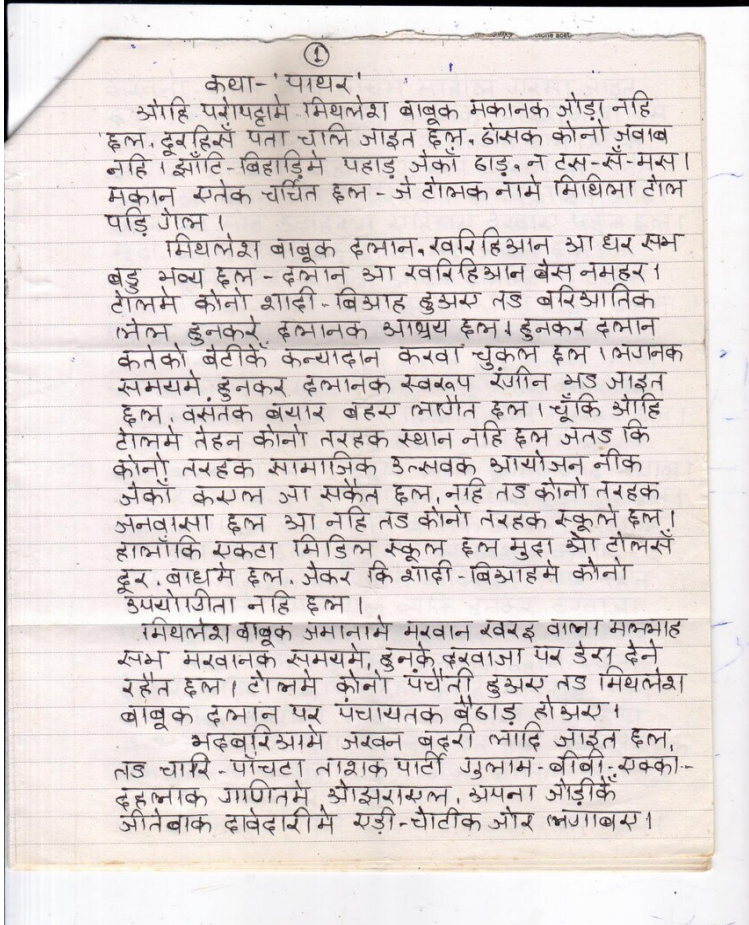 1
कथा-'पाथर'
ओहि परोपट्टामे मिथलेश बाबूक मकानक जोड़ा नहि
छल. दूरहिसँ पता चलि जाइत छल. ठोसक कोनो जवाब
नहि। झाँटि-बिहाड़िमे पहाड़ जेकाँ ठाढ़. ने टस-सँ-मस।
मकान एतेक चर्चित छल-जे टोलक नामे मिथिला टोल
पड़ि गेल।
मिथलेश बाबूक दलान. खरिहिआन आ घर सभ
बड्ड भव्य छल-दलान आ खरिहिआन बेस नमहर।
टोलमे कोनो शादी-बिआह हुअए तऽ बरिआतिक
लेल हुनकरे दलानक आश्रय छल। हुनकर दलान
कतेको बेटीकेँ कन्यादान करवा चुकल छल। लगनक
समयमे हुनकर दलानक स्वरूप रंगीन भऽ जाइत
छल. वसंतक बयार बहए लागैत छल। चूँकि ओहि
टोलमे तेहन कोनो तरहक स्थान नहि छल जतऽ कि
कोनो तरहक सामाजिक उत्सवक आयोजन नीक
जेकाँ कएल जा सकैत छल, नहि तऽ कोनो तरहक
जनवासा छल आ नहि तऽ कोनो तरहक स्कूले छल।
हालाँकि एकटा मिडिल स्कूल छल मुदा ओ टोलसँ
दूर. बाधमे छल. जेकर कि शादी-बिआहमे कोनो
उपयोगिता नहि छल।
मिथलेश बाबूक जमानामे मखान खरड़ वाला मलाह
सभ मखानक समयमे, हुनके दरवाजा पर डेरा देने
रहैत छल। टोलमे कोनो पंचैती हुअए तऽ मिथलेश
बाबूक दलान पर पंचायतक बैठाड़ होअए।
भदबरिआमे जखन बदरी लादि जाइत छल,
तऽ चारि-पाँचटा ताशक पार्टी गुलाम-बीबी-एक्का-
दहलाक गणितमे ओझराएल, अपना जोड़ीकेँ
जीतेबाक दावेदारीमे एड़ी-चोटीक जोर लगाबए।